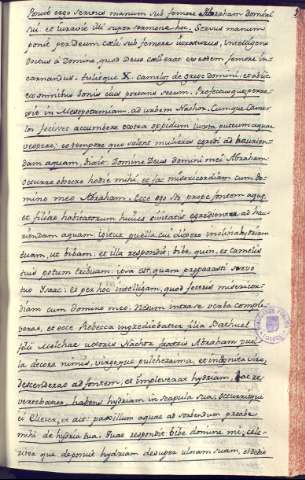 Ponit ergo servus manum sub femore Abraham domini
sui et iuravit illi super sermone hoc. Servus manum
ponit per Deum cœli sub femore iuraturus, intelligens
Deus cœli erat ex femore in-
carnandus. tulitque X. camelos de grege Domini, et abiit
ex omnibus bonis eius portans secum. Profectusque perre-
xit in Mesopotamiam ad urbem Nachor. Cumque Came-
los fecisset accumbere extra oppidum iuxta puteum aquæ
vespere, eo tempore quo solent mulieres egredi ad haurien-
dam aquam, dixit: Domine Deus domini mei Abraham
occurre obsecro hodie mihi et fac misericordiam cum do-
mino meo Abraham. Ecce ego sto prope fontem aquæ,
et filiæ habitatorum huius civitatis egredientur ad hau-
riendam aquam. igitur puella cui dixero inclina hydriam
tuam, ut bibam: et illa respondit: bibe, quin et camelis
tuis potum tribuam: ipsa est quam præparasti servo
tuo Isaac: et per hoc intelligam quod feceris misericor-
diam cum domino meo. Necdum intra se verba comple-
verat, et ecce Rebecca egrediebatur filia Bathuel
filii Melchæ uxoris Nachor fratris Abraham pue-
lla decora nimis, virgoque pulcherrima, et incognita viro,
descenderat ad fontem, et impleverat hydriam, ac re-
vertebatur habens hydriam in scapula sua, occurritque
ei et ait: pauxillum aquæ ad bibendum præbe
mihi de hydria tua. Quæ respondit bibe domine mi, cele-
riter que deposuit hydriam super ulnam suam, et dedit